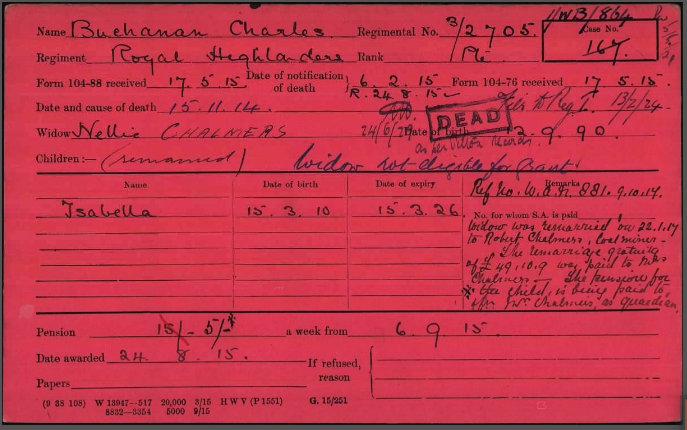 1/WB/864
Name Buchanan Charles Regimental No. 3/2705. Case No. 167.
Regiment Royal Highlanders Rank Pte
Form 104-88 received 17.5.15 Date of notification of death 6.2.15 Form 104-76 received 17.5.15.
R. 24.8.15
Date and cause of death 15.11.14. 13/2/24
DEAD
Widow Nellie CHALMERS 24/6/29 Date of birth 2.9.90.
as per Union records.
Children:— (remarried) Widow not eligible for Grant
Name Date of birth Date of expiry Remarks
Ref No. W.a.R. 881. 9.10.17.
Isabella 15.3.10 15.3.26
No. for whom S.A. is paid 1
Widow was remarried on 22.1.17
to Robert Chalmers, Coalminer -
The remarriage gratuity
of £49.10.9 was paid to Mrs
Chalmers — The pension for
* the child, is being paid to
Chalmers, as guardian.
Pension 15/- 5/-* a week from 6.9.15.
Date awarded 24.8.15.
If refused, reason
Papers
(9 38 108) W 13947—517 20,000 3/15 H W V (P 1551) G. 15/251
8832—3354 5000 9/15